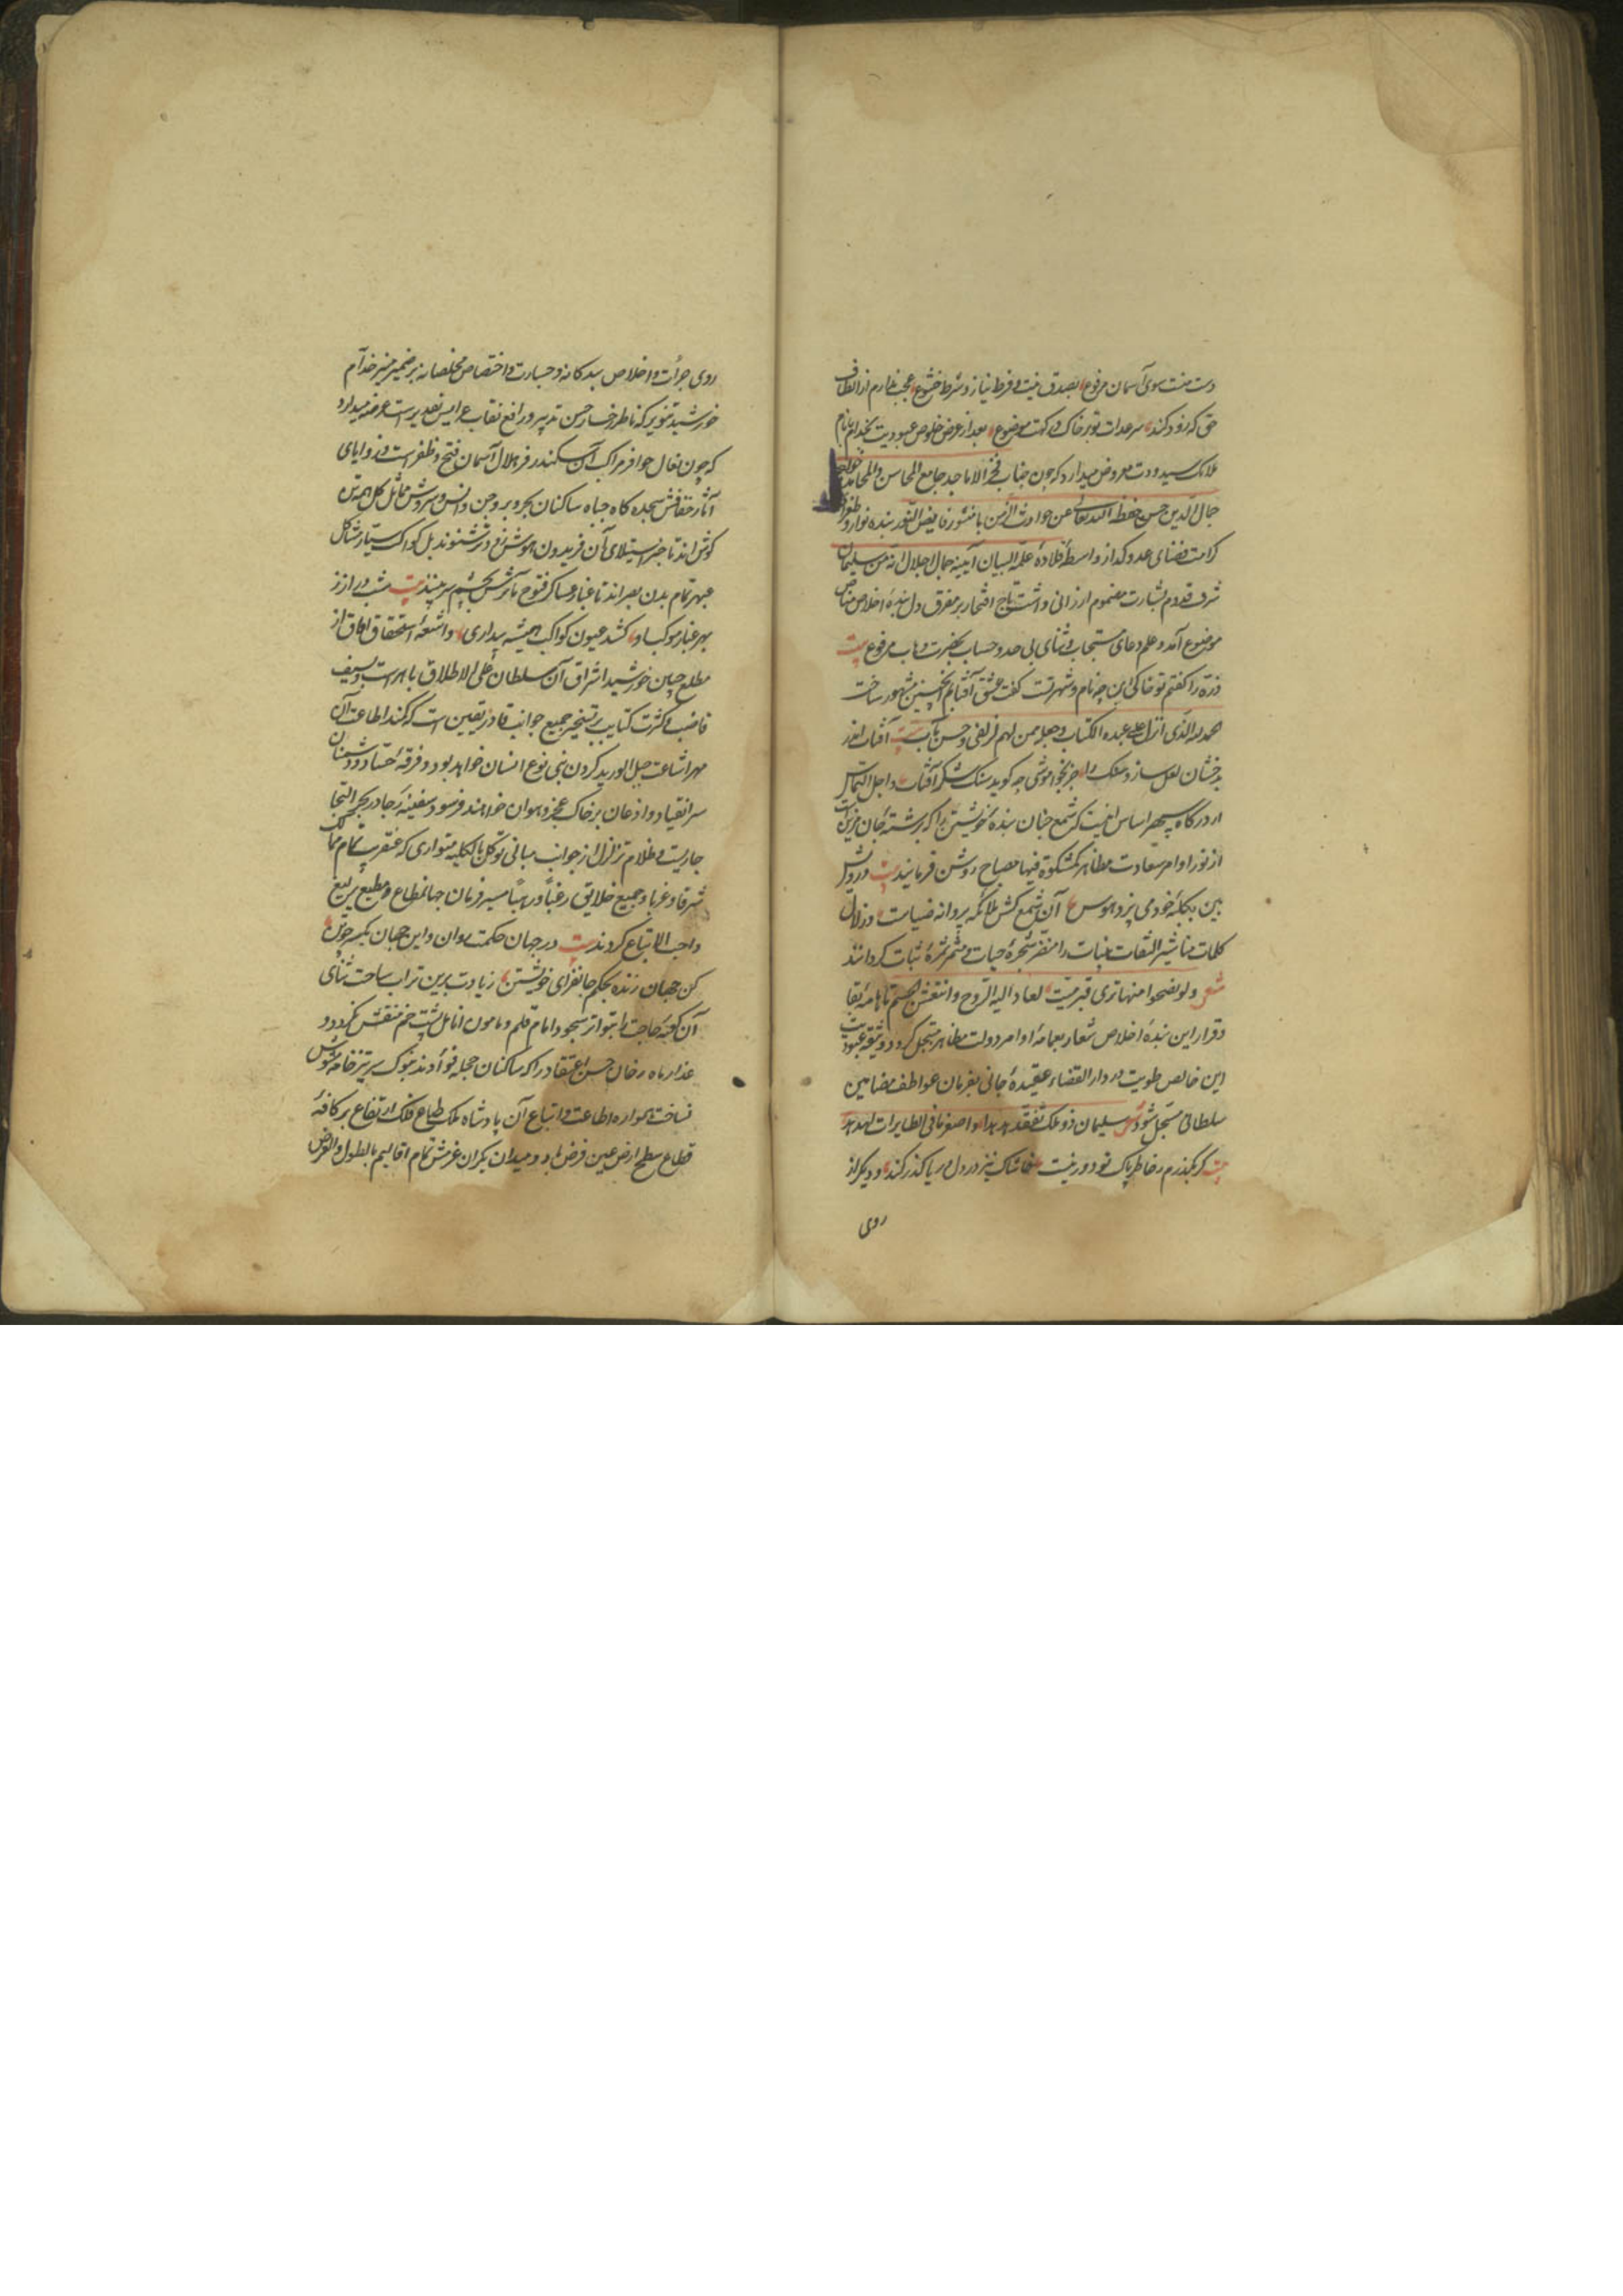 دست منت سوی آسمان مرفوع بصدق نیت و فرط نیاز و شرط خشوع عجب ندارم از الطاف
حق که زود کند سر عدات تو بر خاک درکهت موضوع بعد از عرض خلوص عبودیت بخدام بانام
ملائک سپید و دت معروض میدارد که چون جناب فخر الاماجد جامع المحاسن والمحامد خواجه
جمال الدین حسن حفظه الله تعالی عن حوادث الزمن با منشور فایض النور بنده نواز و طغرای
کرامت فضای عدو کداز واسطهٔ قلادهٔ علمه البیان آیینهٔ جمال اجلال انه من سلیمان
شرف قدوم بشارت مختوم ارزانی داشت تاج افتخار بر مفرق دل بندهٔ اخلاص مناص
موضوع آمد و علم دعای مستجاب و ثنای بی حد و حساب بحضرت وهاب مرفوع بیت
ذره را کفتم تو خاکی این چه نام و شهرتست کفت عشق آفتابم اینچنین مشهور ساخت
الحمد لله الذی انزل علی عبده الکتاب وجعله ممن لهم لزلفی وحسن مآب بیت آفتاب اندر
بدخشان لعل سازد سنک را جز بخواموشی چه کوید سنک شکر آفتاب و اجل التماس
از درکاه سپهر اساس آنست که شمع جنان بندهٔ خویشتن را که برشتهٔ جان مزین است
از نور اوامر سعادت مظاهر کمشکوة فیها مصباح روشن فرمایند بیت درویش
بین بکلبهٔ خود می پزد هوس آن شمع کش ملائکه پروانه ضیاست و زلال
کلمات مناشیر التفات بنیات را مثمر شجرهٔ حیات و مثمر ثمرهٔ ثبات کردانند
شعر ولو نضحوا منها ثری قبر میت لعاد الیه الروح وانتعش الجسم تا نامهٔ بقا
و قرار این بندهٔ اخلاص شعار بعمامهٔ اوامر دولت مظاهر متجمل کردد و وثیقهٔ عبودیت
این خالص طویت در دار القضاء عقیدهٔ جانی بفرمان عواطف مضامین
سلطانی مسجل شود ش سلیمان ذو ملک تفقد هدهدا واصغر ما فی الطایرات الهدهد
بیت کر بکذرم بخاطر پاک تو دور نیست خاشاک نیز در دل دریا کذر کند و دیکر از
روی
روی جرأت و اخلاص بندکانه و جسارت و اختصاص مخلصانه بر ضمیر منیر خدام
خورشید تنویر که ناظر رخسار حسن تدبیر و رافع نقاب عرایس تقدیر است عرضه میدارد
که چون نعال حوافر مراکب آن سکندر فر هلال آسمان فتح و ظفر است و زوایای
آثار خفافش سجده کاه جباه ساکنان بحر و بر و جن و انس و سروش مماثل کل همه تن
کوش اند تا خبر استیلای آن فریدون هوش زفع و شر شنوند بل کواکب سیار مشاکل
عبهر تمام بدن بصر اند تا غبار عساکر فتوح مآثرش بچشم سر بینند بیت شب دراز ز
بهر غبار موکب او کشد عیون کواکب همیشه بیداری و اشعهٔ استحقاق آفاق از
مطلع جبین خورشید اشراق آن سلطان علی الاطلاق باهر است و سیف
قاضب و کثرت کتایب بر تسخیر جمیع جوانب قادر یقین است که کمند اطاعت آن
مهر اشاعت حبل الورید کردن بنی نوع انسان خواهد بود و فرقهٔ حساد و دشمنان
سر انقیاد و اذعان بر خاک عجز و هوان خواهند فرسود و سفینهٔ رجا در بحر التجا
جاریست و ظلام تزلزل از جوانب مبانی توکل بالکلیه متواری که عنقریب تمام ممالک
شرقا و غربا و جمیع خلایق رغبا و رهبا مسیر فرمان جهانمطاع و مطیع یرلیغ
واجب الاتباع کردند بیت در جهان حکمت روان و این جهان یکسر چو تن
کن جهان زنده بحکم جانفزای خویشتن زیادت برین تراب ساحت ثنای
آن کعبهٔ حاجت را بتواتر سجود امام قلم و مأموم انامل پشت خم منقش نکردد و
عذار ماه رخان حسن اعتقاد را که ساکنان حجلهٔ فوأدند بنوک سر تیز خامه مشوش
نساخت همواره اطاعت و اتباع آن پادشاه ملک طباع فلک ارتفاع بر کافهٔ
قطاع سطح ارض عین فرض باد و میدان یکران غرمش تمام اقالیم بالطول والعرض